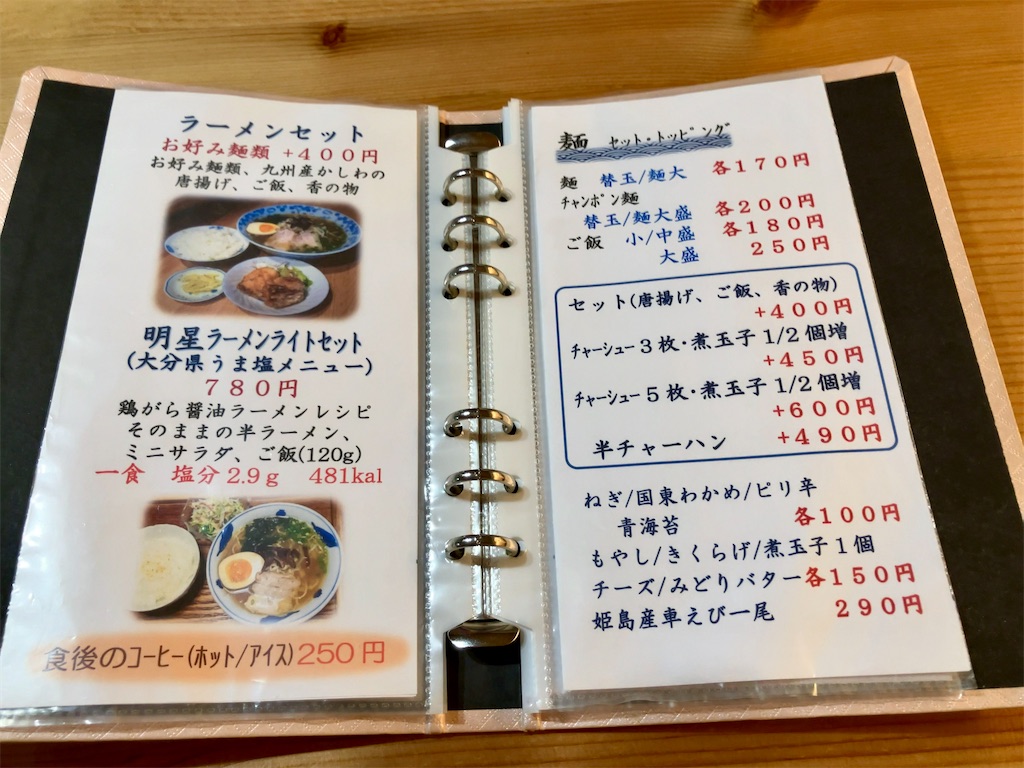 ラーメンセット
お好み麺類 +400円
お好み麺類、九州産かしわの
唐揚げ、ご飯、香の物
明星ラーメンライトセット
(大分県うま塩メニュー)
780円
鶏がら醤油ラーメンレシピ
そのままの半ラーメン、
ミニサラダ、ご飯(120g)
一食 塩分2.9g 481kal
食後のコーヒー(ホット/アイス)250円
麺 セット・トッピング
麺 替玉/麺大 各170円
チャンポン麺
替玉/麺大盛 各200円
ご飯 小/中盛 各180円
大盛 250円
セット(唐揚げ、ご飯、香の物)
+400円
チャーシュー3枚・煮玉子1/2個増
+450円
チャーシュー5枚・煮玉子1/2個増
+600円
半チャーハン +490円
ねぎ/国東わかめ/ピリ辛
青海苔 各100円
もやし/きくらげ/煮玉子1個
チーズ/みどりバター各150円
姫島産車えび一尾 290円